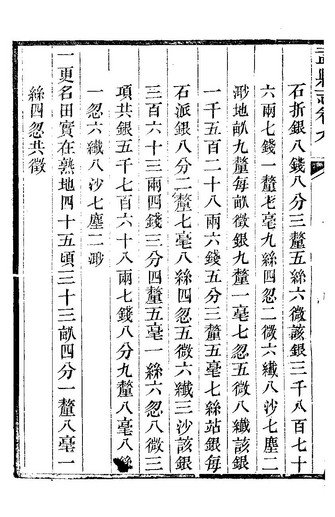 孟縣志卷九
石折銀八錢八分三釐五絲六微該銀三千八百七十
六兩七錢一釐七毫九絲四忽二微六纖八沙七塵二
渺地畝九釐每畝徵銀九釐一毫七忽五微八纖該銀
一千五百二十八兩六錢五分三釐五毫七絲站銀每
石派銀八分二釐七毫八絲四忽五微六纖三沙該銀
三百六十三兩四錢三分四釐五毫一絲六忽八微三
項共銀五千七百六十八兩七錢八分九釐八毫八絲
一忽六纖八沙七塵二渺
一更名田實在熟地四十五頃三十三畝四分一釐八毫一
絲四忽共徵